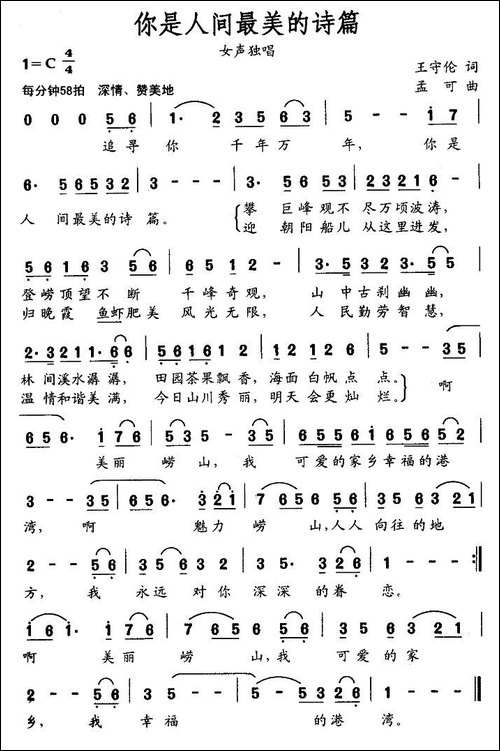 你是人间最美的诗篇
女声独唱
1=C 4/4
王守伦 词
每分钟58拍 深情、赞美地
孟可 曲
0 0 0 5 6 | 1· 2 3 5 6 3 | 5 - - 1 7 |
追寻 你 千年万 年, 你是
6· 5 6 5 3 2 | 3 - - - | 3· 5 6 5 3 | 2 3 2 1 6 - |
人 间最美的诗 篇。 攀 巨峰观不 尽万顷波涛,
迎 朝阳船儿 从这里进发,
5 6 1 6 3 5 6 | 6 5 1 2 - | 3· 5 3 2 1 2 |
登崂顶望不断 千峰奇观, 山 中古刹幽幽,
归晚霞 鱼虾肥美 风光无限, 人 民勤劳智慧,
2· 3 2 1 1· 6 6 | 5 6 1 6 1 2 | 1 2 1 2 6 | 5 - - 3 5 |
林 间溪水潺潺, 田园茶果飘香,海面白帆点点。 啊
温 情和谐美满, 今日山川秀丽,明天会更灿烂。
6 5 6· 1 7 6 | 5 3 - 5 | 6 5 6 5 6 1 6 5 6 5 2 |
美丽 崂山,我 可爱的家乡幸福的港
3 - - 3 5 | 6 5 6· 3 2 1 | 7 6 5 6 5 3 5 | 3 5 6 3 2 1 |
湾, 啊 魅力 崂 山,人人 向往的地
2 - - 5 6 | 3 5 6 3 2 | 3 5· 3 2 6 | 1 - - - :|
方, 我 永远 对你 深深 的眷 恋。
1 6 1· 1 7 6 | 7 6 5 6 5 3 | 6 5 6 1 2 3 |
啊 美丽 崂 山,我 可爱的家
2 - - 5 6 | 3 5 6 - | 5 6 3 2 | 1 - - - |
乡, 我 幸福 的港 湾。